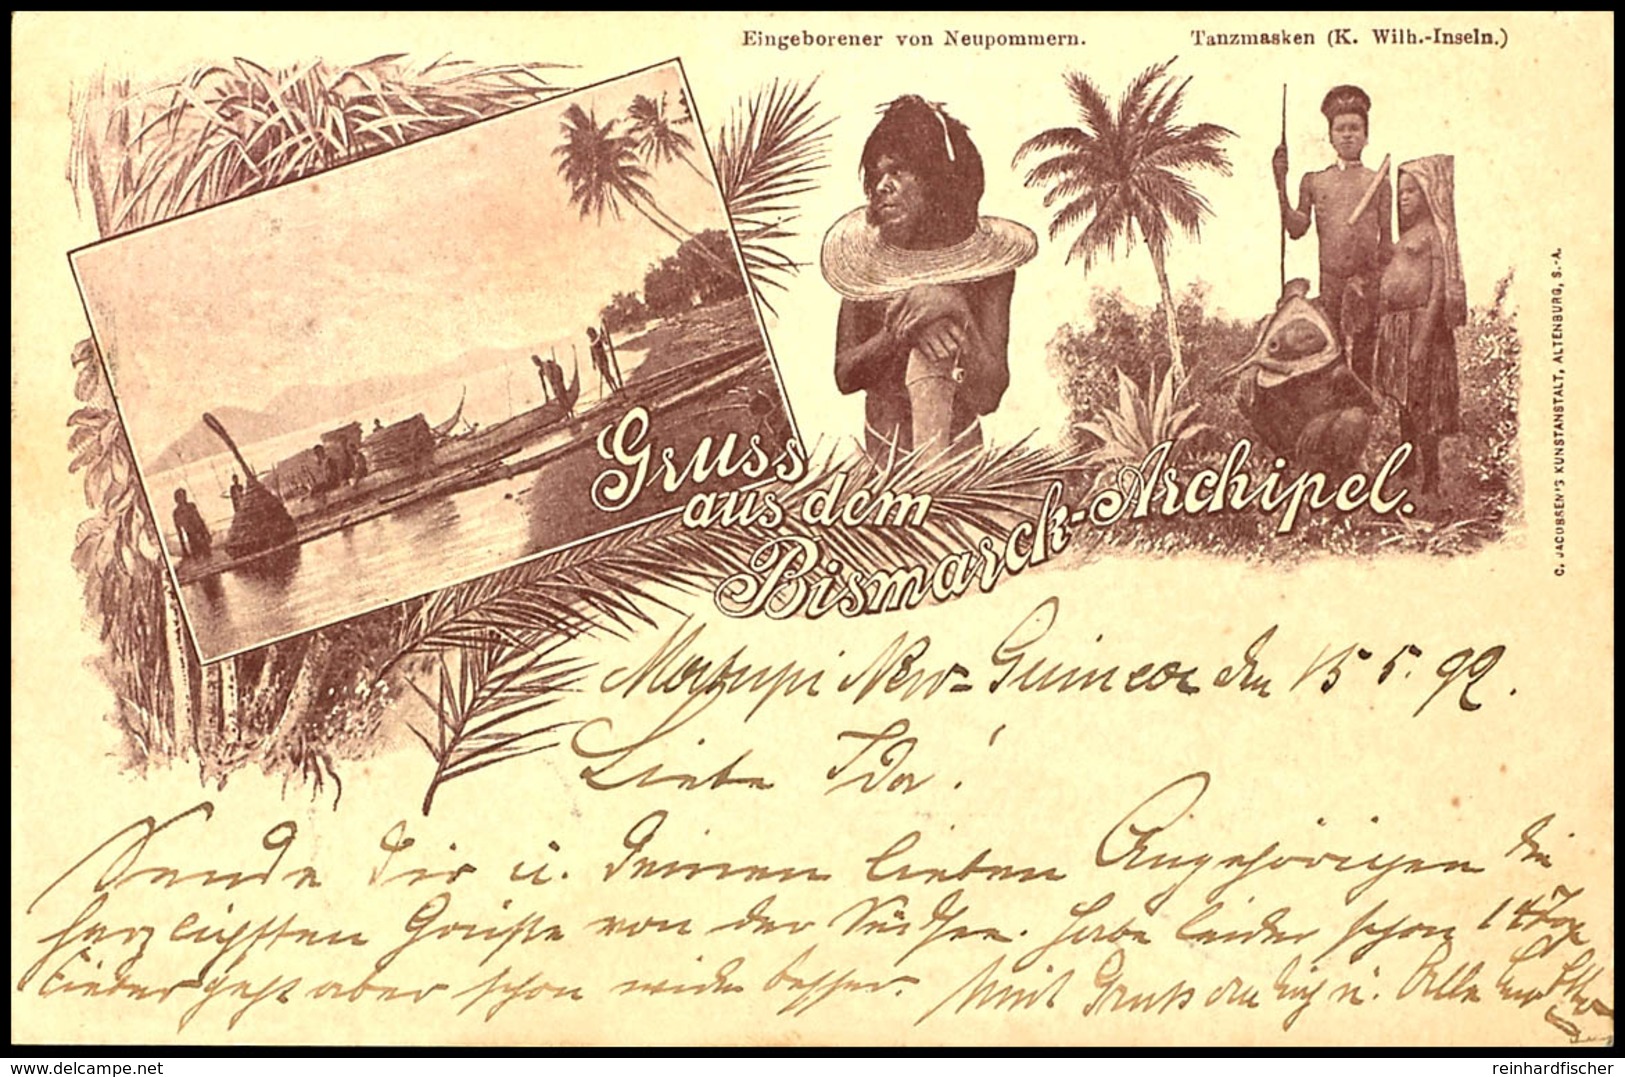 Eingeborener von Neupommern.
Tanzmasken (K. Wilh.-Inseln.)
Gruss
aus dem
Bismarck-Archipel.
C. JACOBSEN'S KUNSTANSTALT, ALTENBURG, S.-A.
Matupi New-Guinea den 15 5. 99.
Liebe Ida!
Sende Dir u. Deinen lieben Angehörigen die
herzlichsten Grüße von der Südsee. Habe leider schon 14 Tage
Fieber geht aber schon wieder besser. Mit Gruß an Dich u. Alle
delcampe.net
reinhardfischer